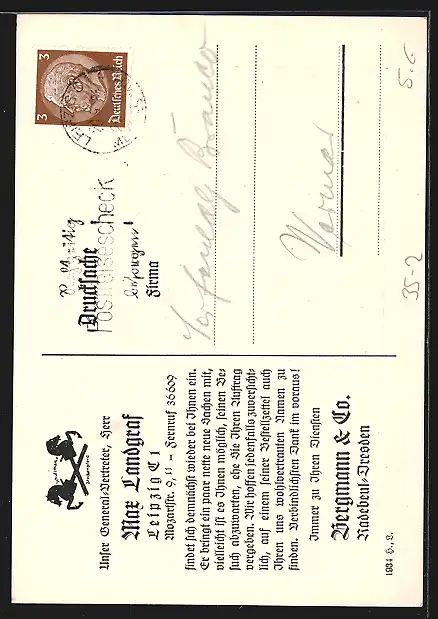 Unser General-Vertreter, Herr
Max Landgraf
Leipzig C 1
Mozartstr. 9, II – Fernruf 36609
findet sich demnächst wieder bei Ihnen ein.
Er bringt ein paar nette neue Sachen mit,
vielleicht ist es Ihnen möglich, seinen Be-
such abzuwarten, ehe Sie Ihren Auftrag
vergeben. Wir hoffen jedenfalls zuversicht-
lich, auf einem seiner Bestellzettel auch
Ihren uns wohlvertrauten Namen zu
finden. Verbindlichsten Dank im voraus!
Immer zu Ihren Diensten
Bergmann & Co.
Radebeul-Dresden
1934 H. L.
3 3
Deutsches Reich
Postreisescheck
Drucksache
Firma
Weimar
35-2
5.-